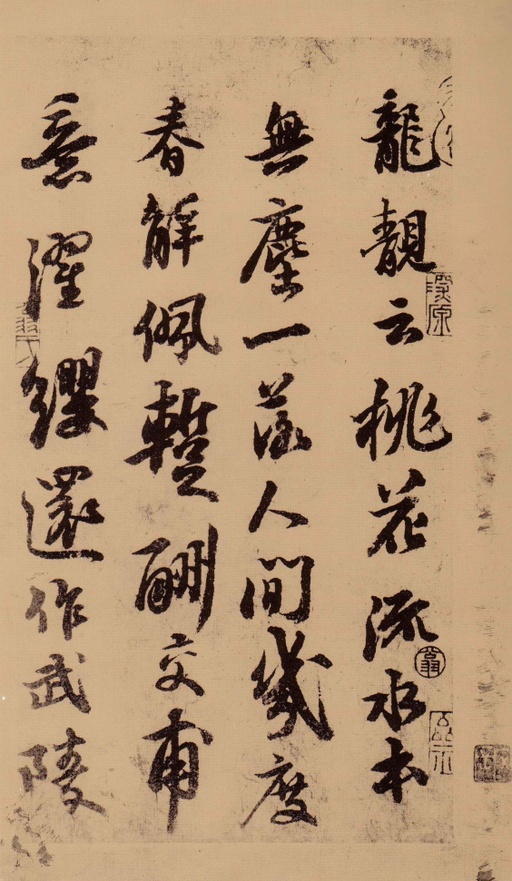 龍靚云桃花流水本
無塵一落人間幾度
春解佩蹔酬交甫
意濯纓還作武陵